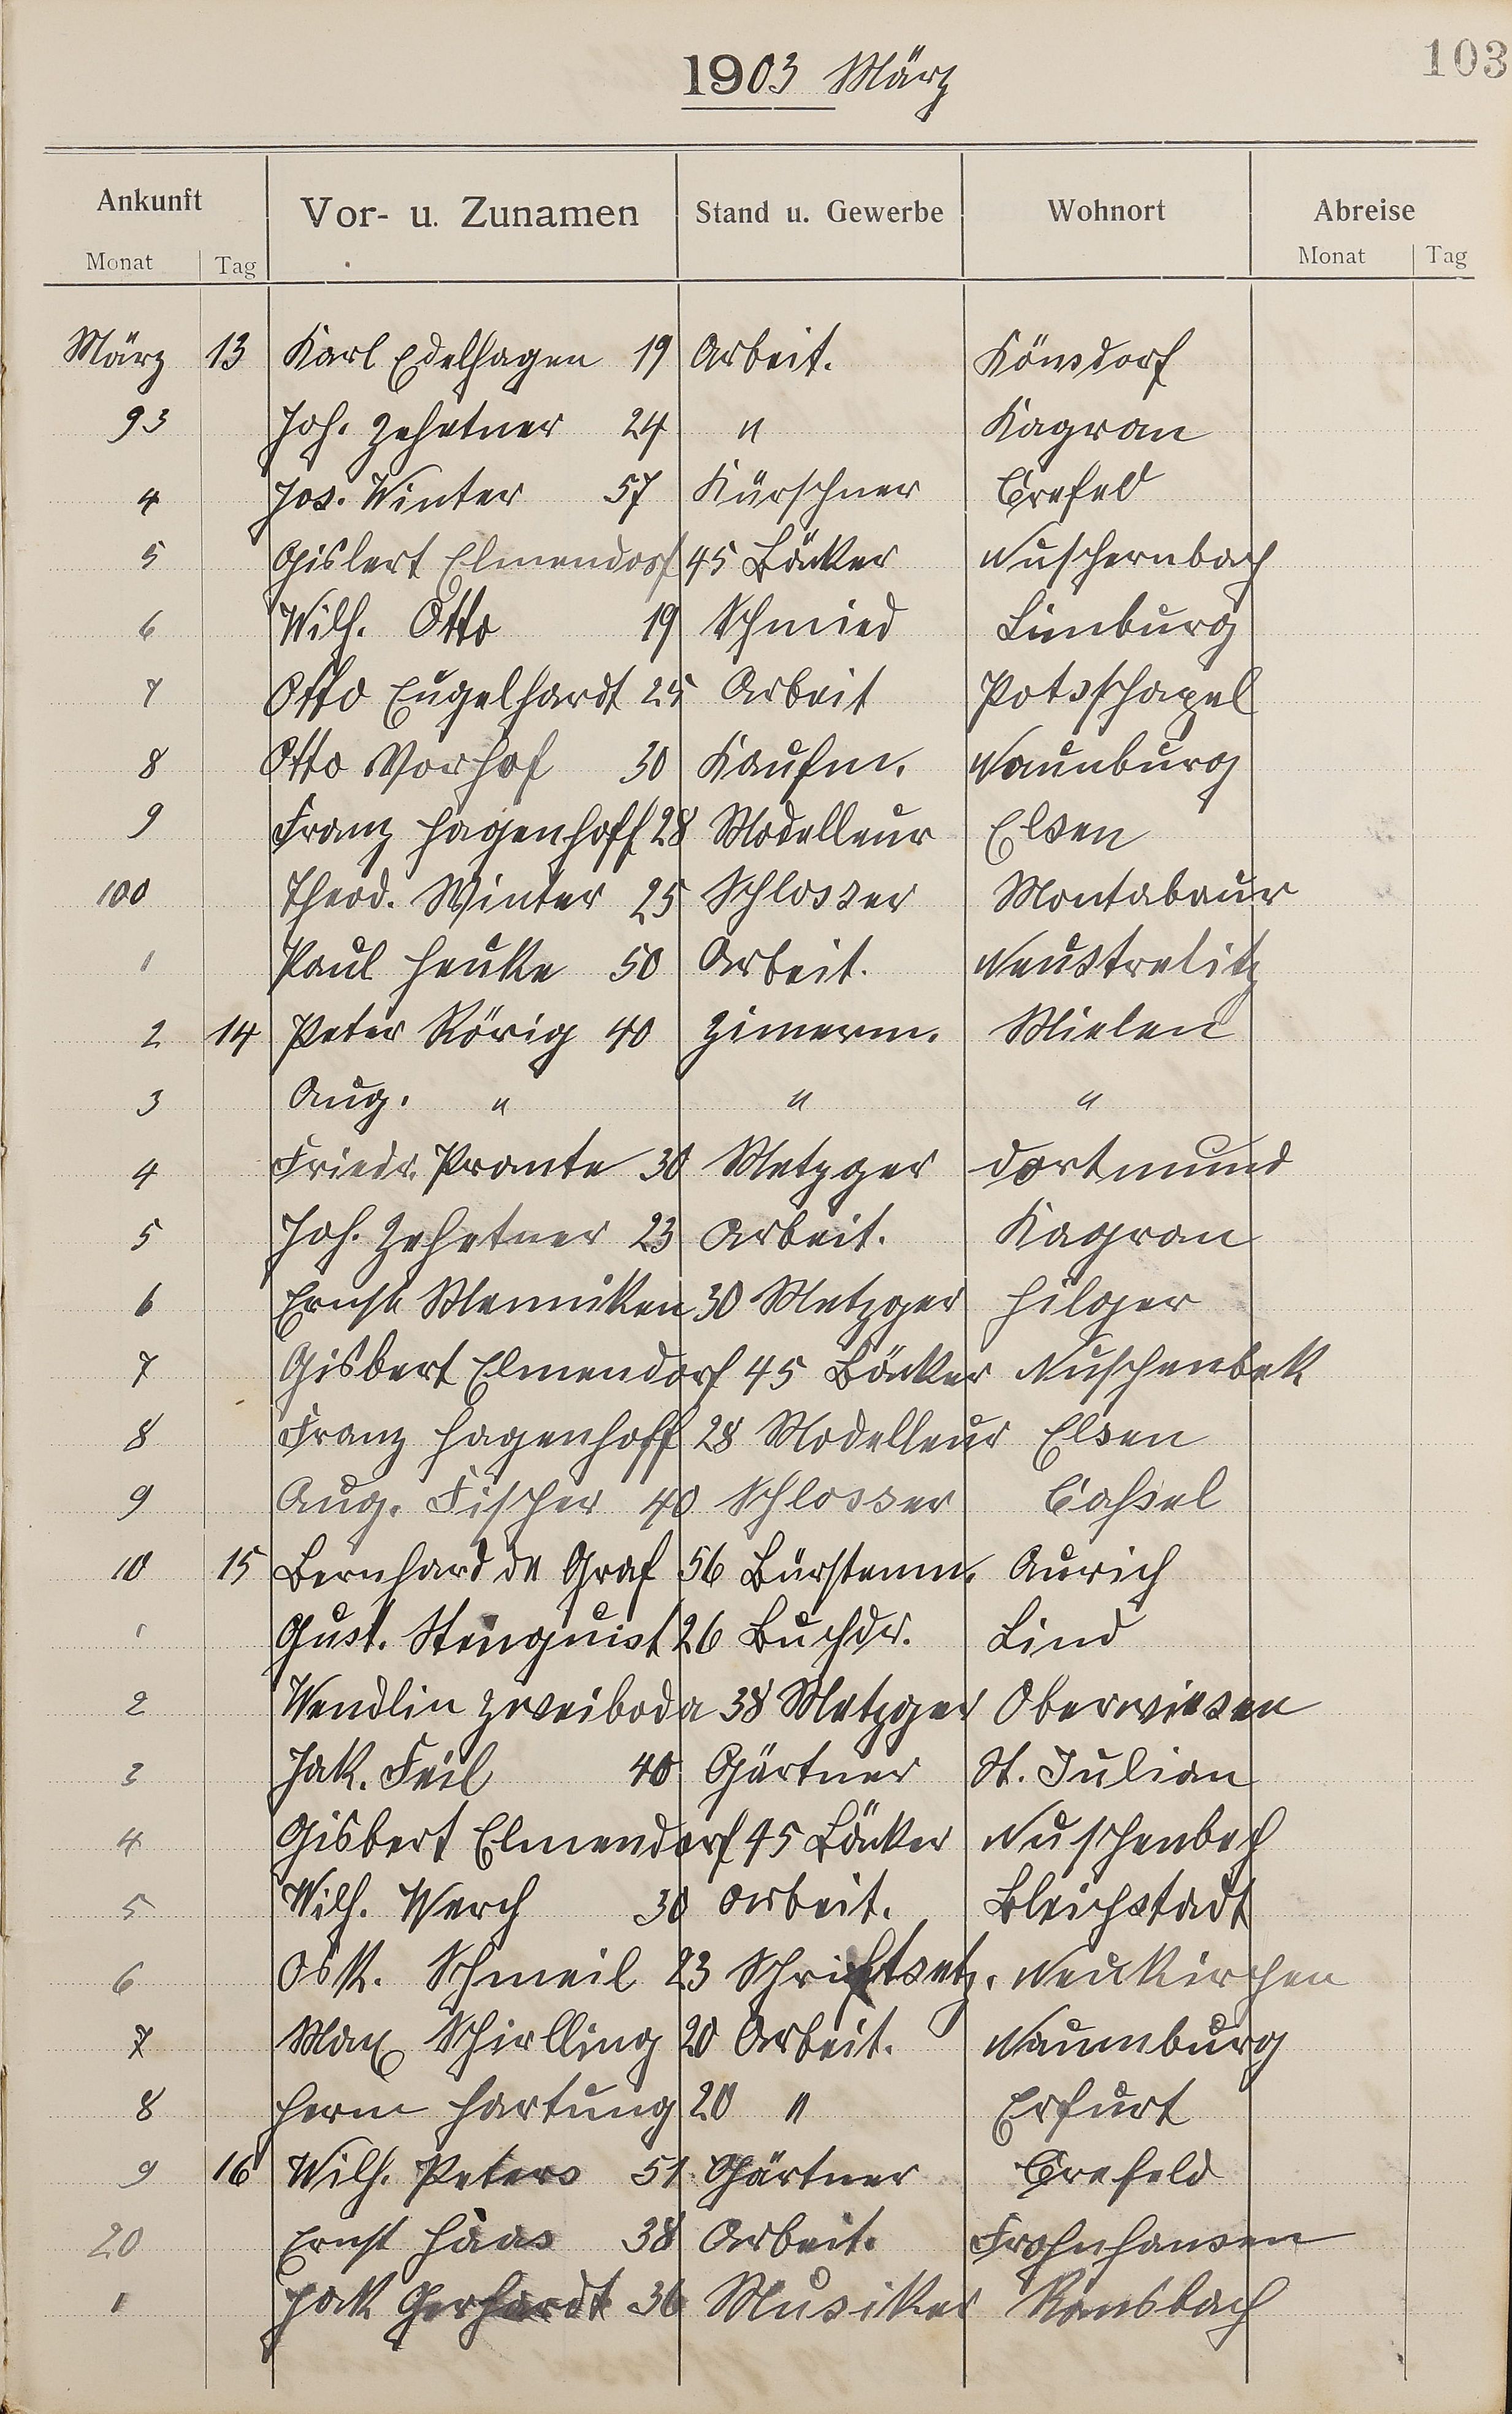 103
1903 März
Ankunft Vor- u. Zunamen Stand u. Gewerbe Wohnort Abreise
Monat Tag Monat Tag
März 13 Karl Edelhagen 19 Arbeit. Könsdorf
93 Joh. Zehetner 24 " Kagran
4 Jos. Winter 57 Kürschner Crefeld
5 Gislert Elmendorf 45 Bäcker Nuschernbach
6 Wilh. Otto 19 Schmied Limburg
7 Otto Engelhardt 25 Arbeit Potsschapel
8 Otto Vorhof 30 Kaufm. Naumburg
9 Franz Hagenhoff 28 Modelleur Elsen
100 Theod. Winter 25 Schlosser Montabaur
1 Paul Henke 50 Arbeit. Neustrelitz
2 14 Peter Rörig 40 Zimerm. Mielen
3 Aug. " " "
4 Friedr. Prante 30 Metzger Dortmund
5 Joh. Zehetner 23 Arbeit. Kagran
6 Ernst Menniken 30 Metzger Hilger
7 Gisbert Elmendorf 45 Bäcker Nuschenbek
8 Franz Hagenhoff 28 Modelleur Elsen
9 Aug. Fischer 40 Schlosser Cassel
10 15 Bernhard de Graf 56 Bürstenm. Aurich
1 Gust. Stenquist 26 Buchdr. Lind
2 Wendlin Zweiboda 38 Metzger Oberwiesen
3 Jak. Feil 40 Gärtner St. Julian
4 Gisbert Elmendorf 45 Bäcker Nuschenbech
5 Wilh. Werch 30 Arbeit. Bleichstadt
6 Osk. Schmeil 23 Schriftsetz. Neukirchen
7 Max Schirlling 20 Arbeit. Naumburg
8 Herm Hartung 20 " Erfurt
9 16 Wilh. Peters 51 Gärtner Crefeld
20 Ernst Haas 38 Arbeit. Frohnhausen
1 Jak Gerhardt 36 Musiker Ransbach